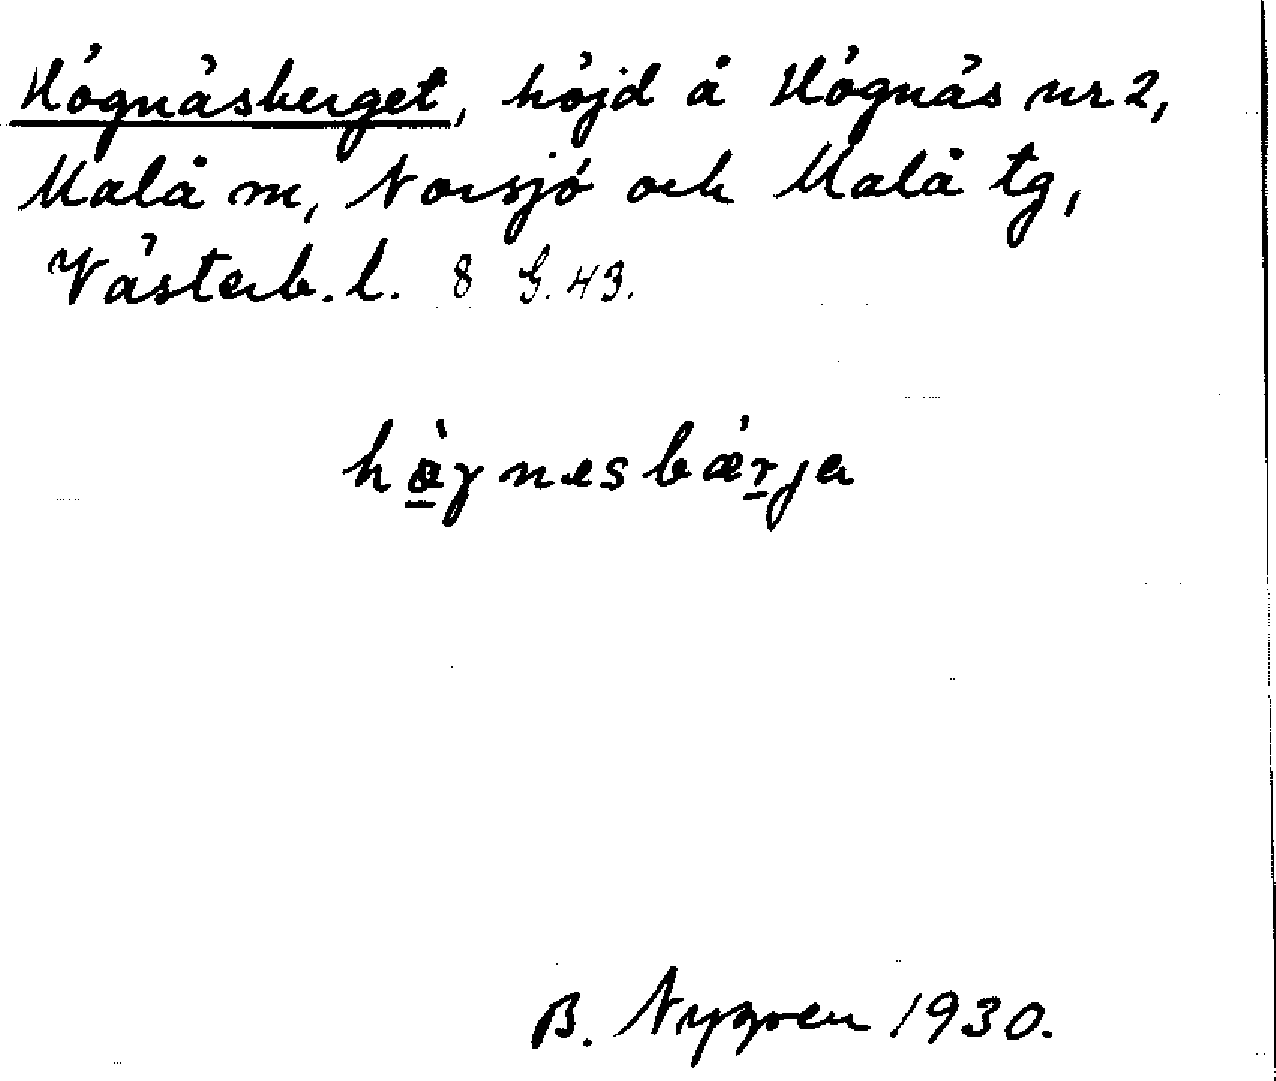 Högnäsberget, höjd å Högnäs nr 2,
Malå sn, Norsjö och Malå tg,
Västerb. l. 8 G. 43.
hö̀ꞬnesbǼrja
B. Nygren 1930.